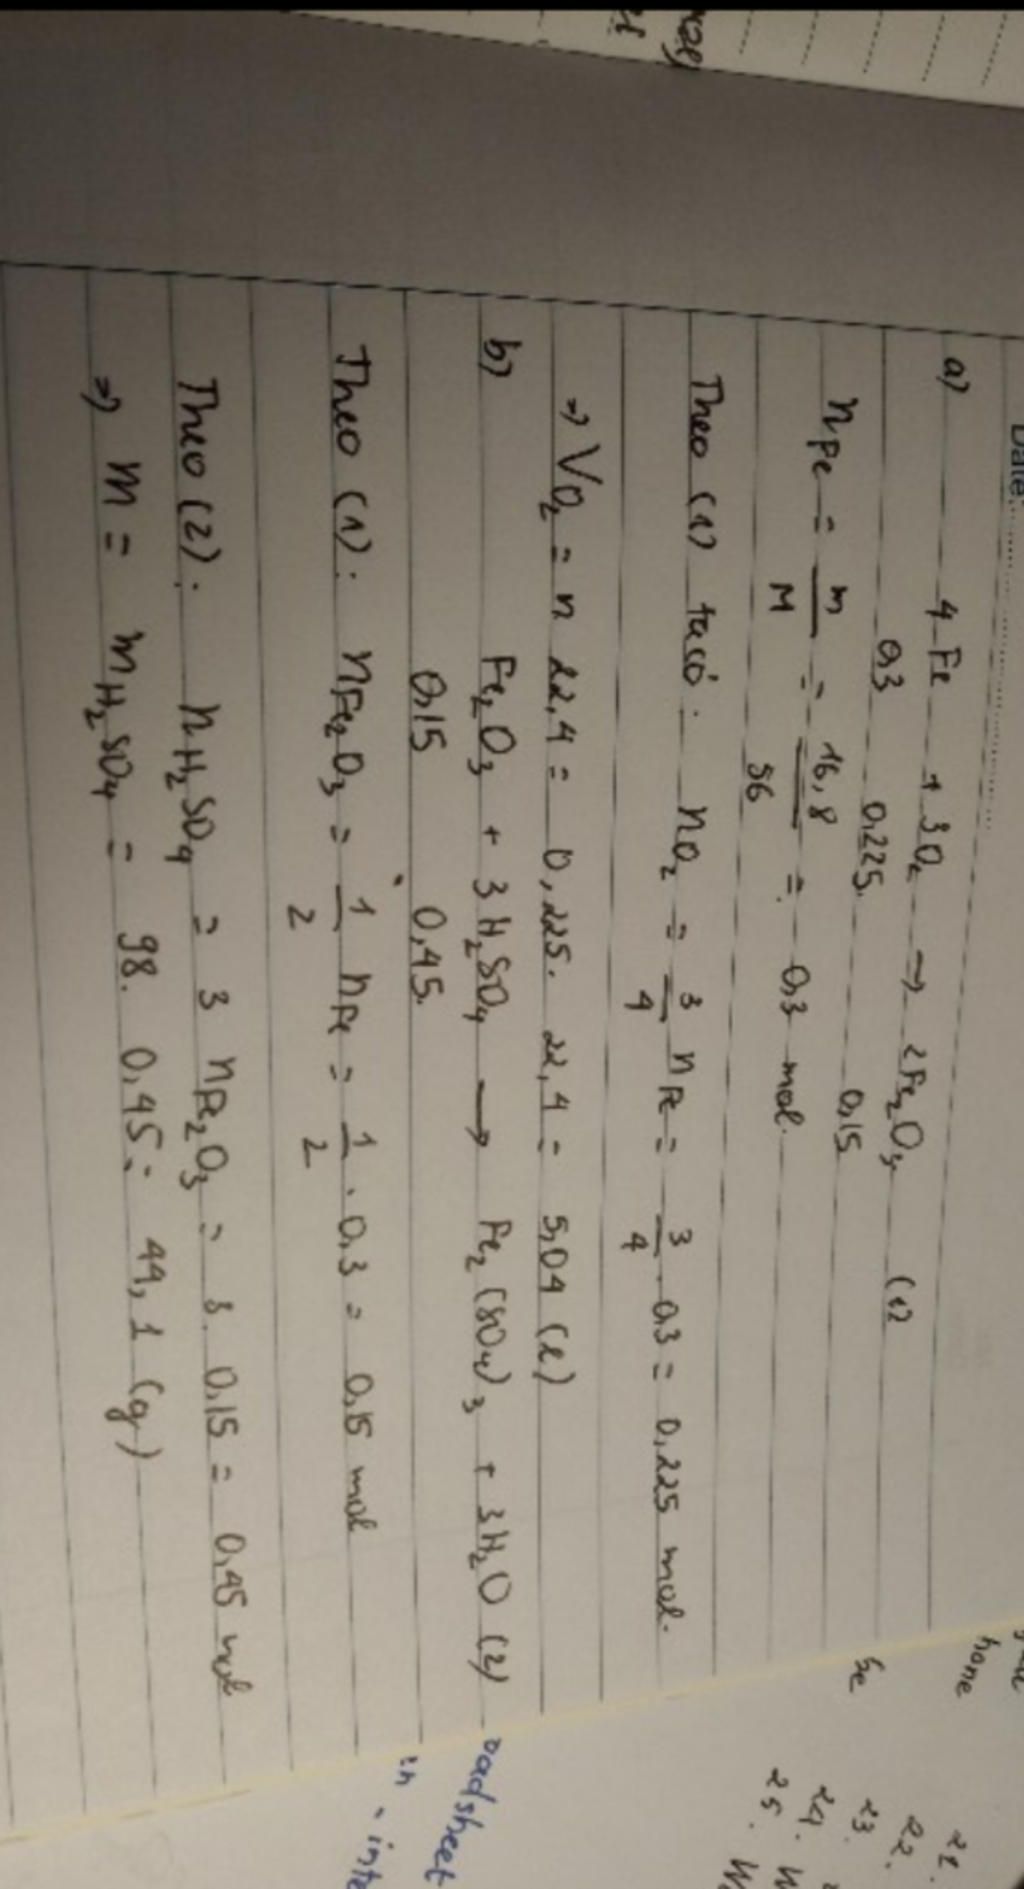 Date:
a) 4 Fe + 3O₂ → 2Fe₂O₃ (1)
0,3 0,225. 0,15
nFe = m/M = 16,8/56 = 0,3 mol.
Theo (1) ta có: nO₂ = 3/4 nFe = 3/4 . 0,3 = 0,225 mol.
⇒ VO₂ = n 22,4 = 0,225. 22,4 = 5,04 (l)
b) Fe₂O₃ + 3H₂SO₄ → Fe₂(SO₄)₃ + 3H₂O (2)
0,15 0,45.
Theo (1): nFe₂O₃ = 1/2 nFe = 1/2 . 0,3 = 0,15 mol
Theo (2): nH₂SO₄ = 3 nFe₂O₃ = 3. 0,15 = 0,45 mol
⇒ m = mH₂SO₄ = 98. 0,45 = 44,1 (g)
hone
22.
23.
24.
25.